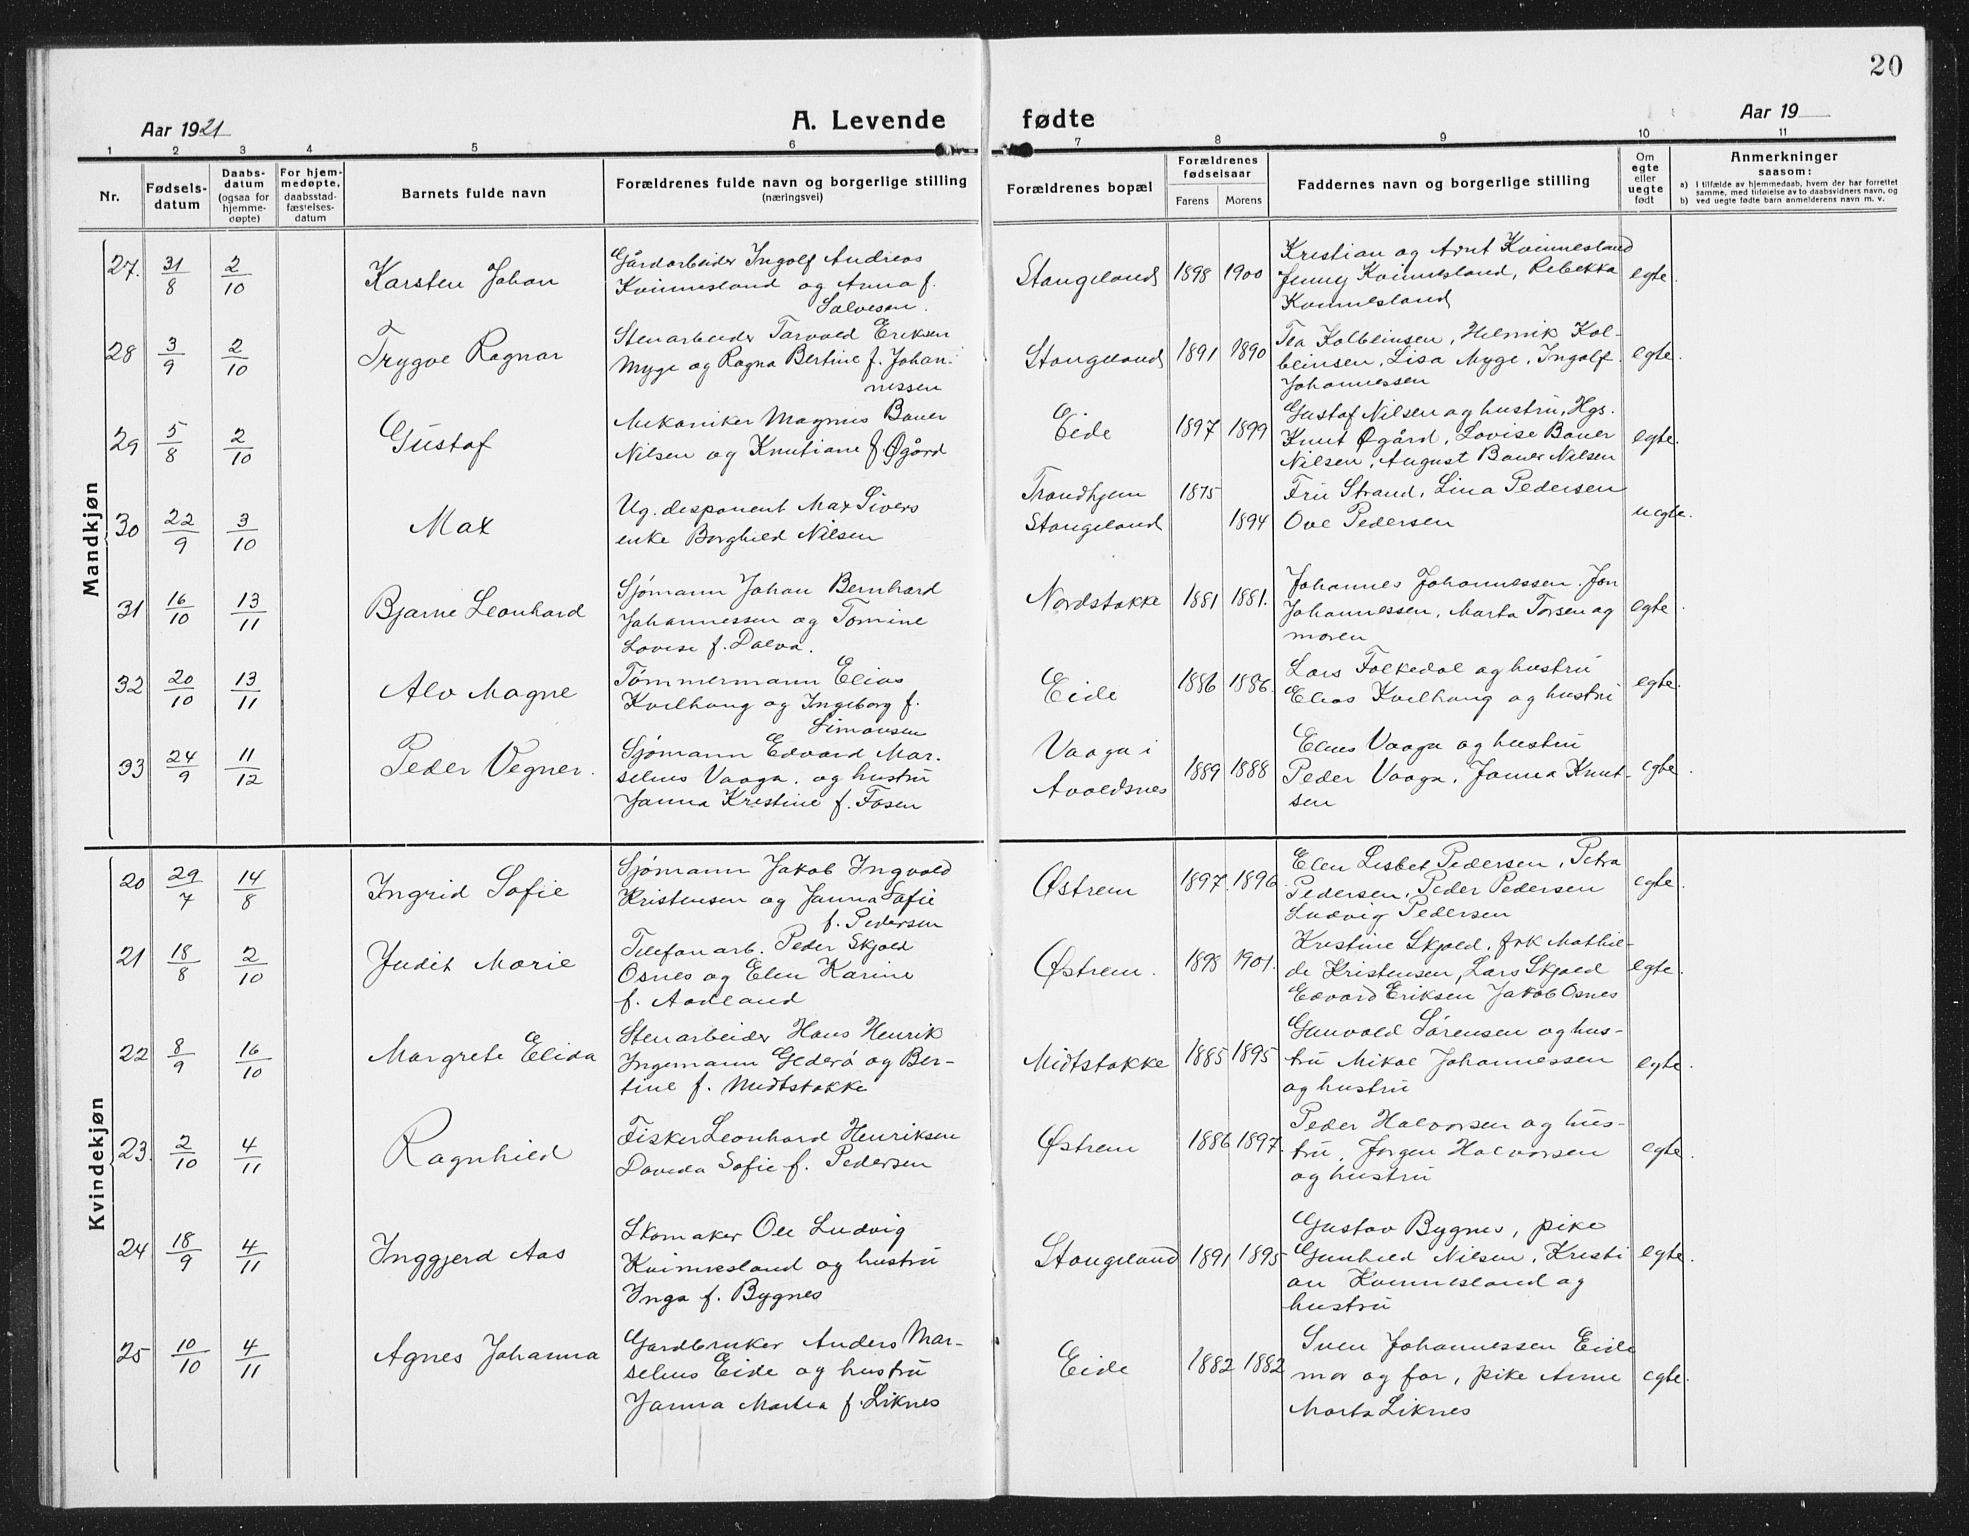 20
Aar 1921
A. Levende
fødte
Aar 19
1 2 3 4 5 6 7 8 9 10 11
Nr.
Fødsels-
datum
Daabs-
datum
(ogsaa for
hjemme-
døpte)
For hjem-
medøpte,
daabsstad-
fæstelses-
datum
Barnets fulde navn
Forældrenes fulde navn og borgerlige stilling
(næringsvei)
Forældrenes bopæl
Forældrenes
fødselsaar
Farens Morens
Faddernes navn og borgerlige stilling
Om
egte
eller
uegte
født
Anmerkninger
saasom:
a) i tilfælde av hjemmedaab, hvem der har forrettet
samme, med tilføielse av to daabsvidners navn, og
b) ved uegte fødte barn anmelderens navn m. v.
Mandkjøn
27. 31/8 2/10 Karsten Johan
Gårdarbeider Ingolf Andreas
Kvinnesland og Anna f.
Salvesen.
Stangeland 1898 1900
Kristian og Arnt Kvinnesland
Jenny Kvinnesland, Rebekka
Kvinnesland
egte.
28 3/9 2/10 Trygve Ragnar
Stenarbeider Tarvald Eriksen
Myge og Ragna Bertine f. Johan-
nessen
Stangeland 1891 1890
Tea Kolbeinsen, Helmik Kol-
beinsen, Lisa Myge, Ingolf
Johannessen
egte.
29 5/8 2/10 Gustaf
Mekaniker Magnus Bauer
Nilsen og Knutiane f. Øgård
Eide 1897 1899
Gustaf Nilsen og hustru, Hgs.
Knut Øgård, Lovise Bauer
Nilsen, August Bauer Nilsen
egte.
30 22/9 3/10 Max
Ug. desponent Max Sivers
enke Borghild Nilsen
Trondhjem 1875
Stangeland 1894
Fru Strand, Lina Pedersen
Ove Pedersen
uegte.
31 16/10 13/11 Bjarne Leonhard
Sjømann Johan Bernhard
Johannessen og Tomine
Lovise f. Dalva.
Nordstokke 1881 1881.
Johannes Johannessen. Jon
Johannessen, Marta Torsen og
moren
egte.
32 20/10 13/11 Alv Magne
Tømmermann Elias
Kvilhaug og Ingeborg f.
Simonsen
Eide 1886 1886.
Lars Folkedal og hustru
Elias Kvilhaug og hustru
egte.
33 24/9 11/12 Peder Vegner.
Sjømann Edvard Mar-
selius Vaaga, og hustru
Janna Kristine f. Fosen
Vaaga i
Avaldsnes
1889 1888
Elues Vaaga og hustru
Peder Vaaga, Janna Knut-
sen
egte.
Kvindekjøn
20 29/7 14/8 Ingrid Sofie
Sjømann Jakob Ingvald
Kristensen og Janna Sofie
f. Pedersen
Østrem 1897. 1896.
Elen Lisbet Pedersen, Petra
Pedersen, Peder Pedersen
Ludvig Pedersen
egte.
21 18/8 2/10 Judit Marie
Telefonarb. Peder Skjold
Osnes og Elen Karine
f. Aadland
Østrem. 1898 1901.
Kristine Skjold, frk Mathil-
de Kristensen, Lars Skjold
Edvard Eriksen Jakob Osnes
egte.
22 8/9 16/10 Margrete Elida
Stenarbeider Hans Henrik
Ingemann Gederø og Ber-
tine f. Midtstokke
Midtstokke 1885 1895
Gunvald Sørensen og hus-
tru Mikal Johannessen
og hustru
egte.
23. 2/10 4/11 Ragnhild
Fisker Leonhard Henriksen
Davida Sofie f. Pedersen
Østrem 1886 1897.
Peder Halvorsen og hus-
tru, Jørgen Halvorsen
og hustru
egte.
24 18/9 4/11 Inggjerd Aas
Skomaker Ole Ludvig
Kvinnesland og hustru
Inga f. Bygnes
Stangeland 1891 1895
Gustav Bygnes, pike
Gunhild Nilsen, Kristi
an Kvinnesland og
hustru
egte.
25 10/10 4/11 Agnes Johanna
Gardbruker Anders Mar-
selius Eide og hustru
Janna Martha f. Liknes
Eide 1882 1882
Sven Johannessen Eide
mor og far, pike Anne
Marta Liknes
egte.